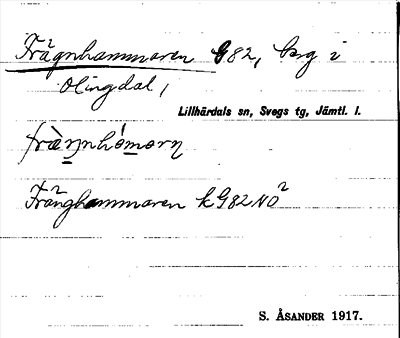 Frägnhammaren G82, berg i
Olingdal,
Lillhärdals sn, Svegs tg, Jämtl. l.
frä̀ŋnhó̱mo̱rn̥
Frånghammaren k G82 NO²
S. ÅSANDER 1917.